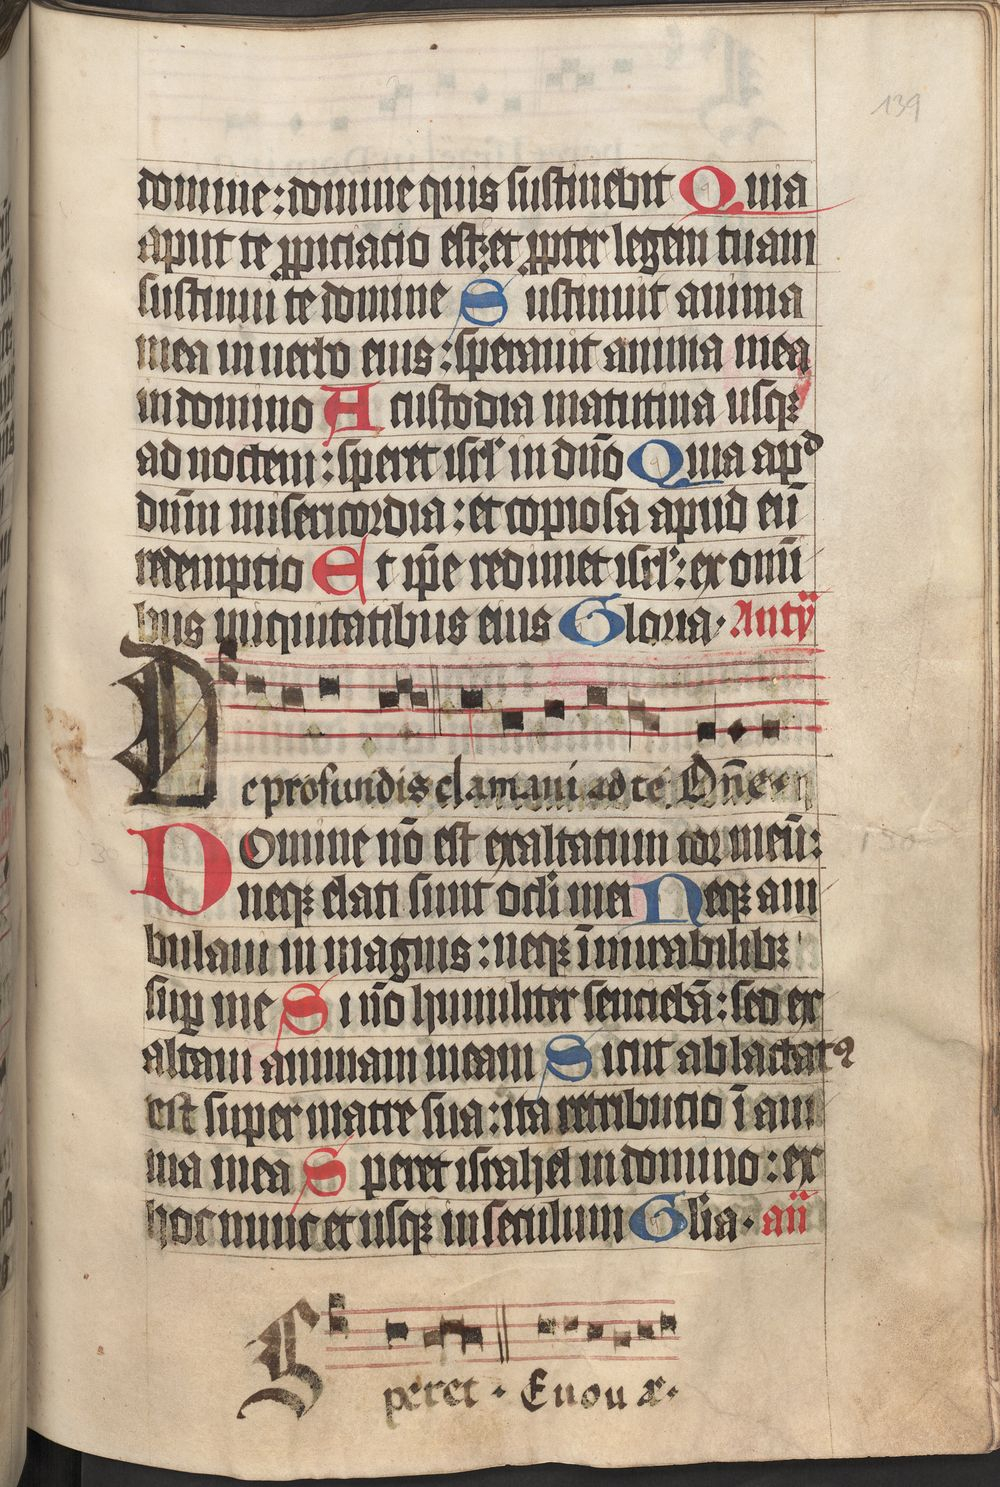 139
domine: domine quis sustinebit Quia
aput te ꝓpiciacio est: et ꝓpter legem tuam
sustinui te domine Sustinuit anima
mea in uerbo eius: sperauit anima mea
in domino A custodia matutina usqꝫ
ad noctem: speret isrl' in dn̄o Quia apd
dūm misericordia: et copiosa apud eū
redempcio Et ip̄e redimet isrl': ex omī
bus iniquitatibus eius Gloria· Anty
De profundis clamaui ad te Dn̄e·
Domine nō est exaltatum cor meū:
neqꝫ elati sunt oculi mei Neqꝫ am
bulaui in magnis: neqꝫ ī mirabilibꝫ
suꝑ me Si nō humiliter senciebā: sed ex
altaui animam meam Sicut ablactatꝰ
est super matre sua: ita retribucio ī ani
ma mea Speret israhel in domino: ex
hoc nunc et usqꝫ in seculum Glia· añ
Speret · Euouae·